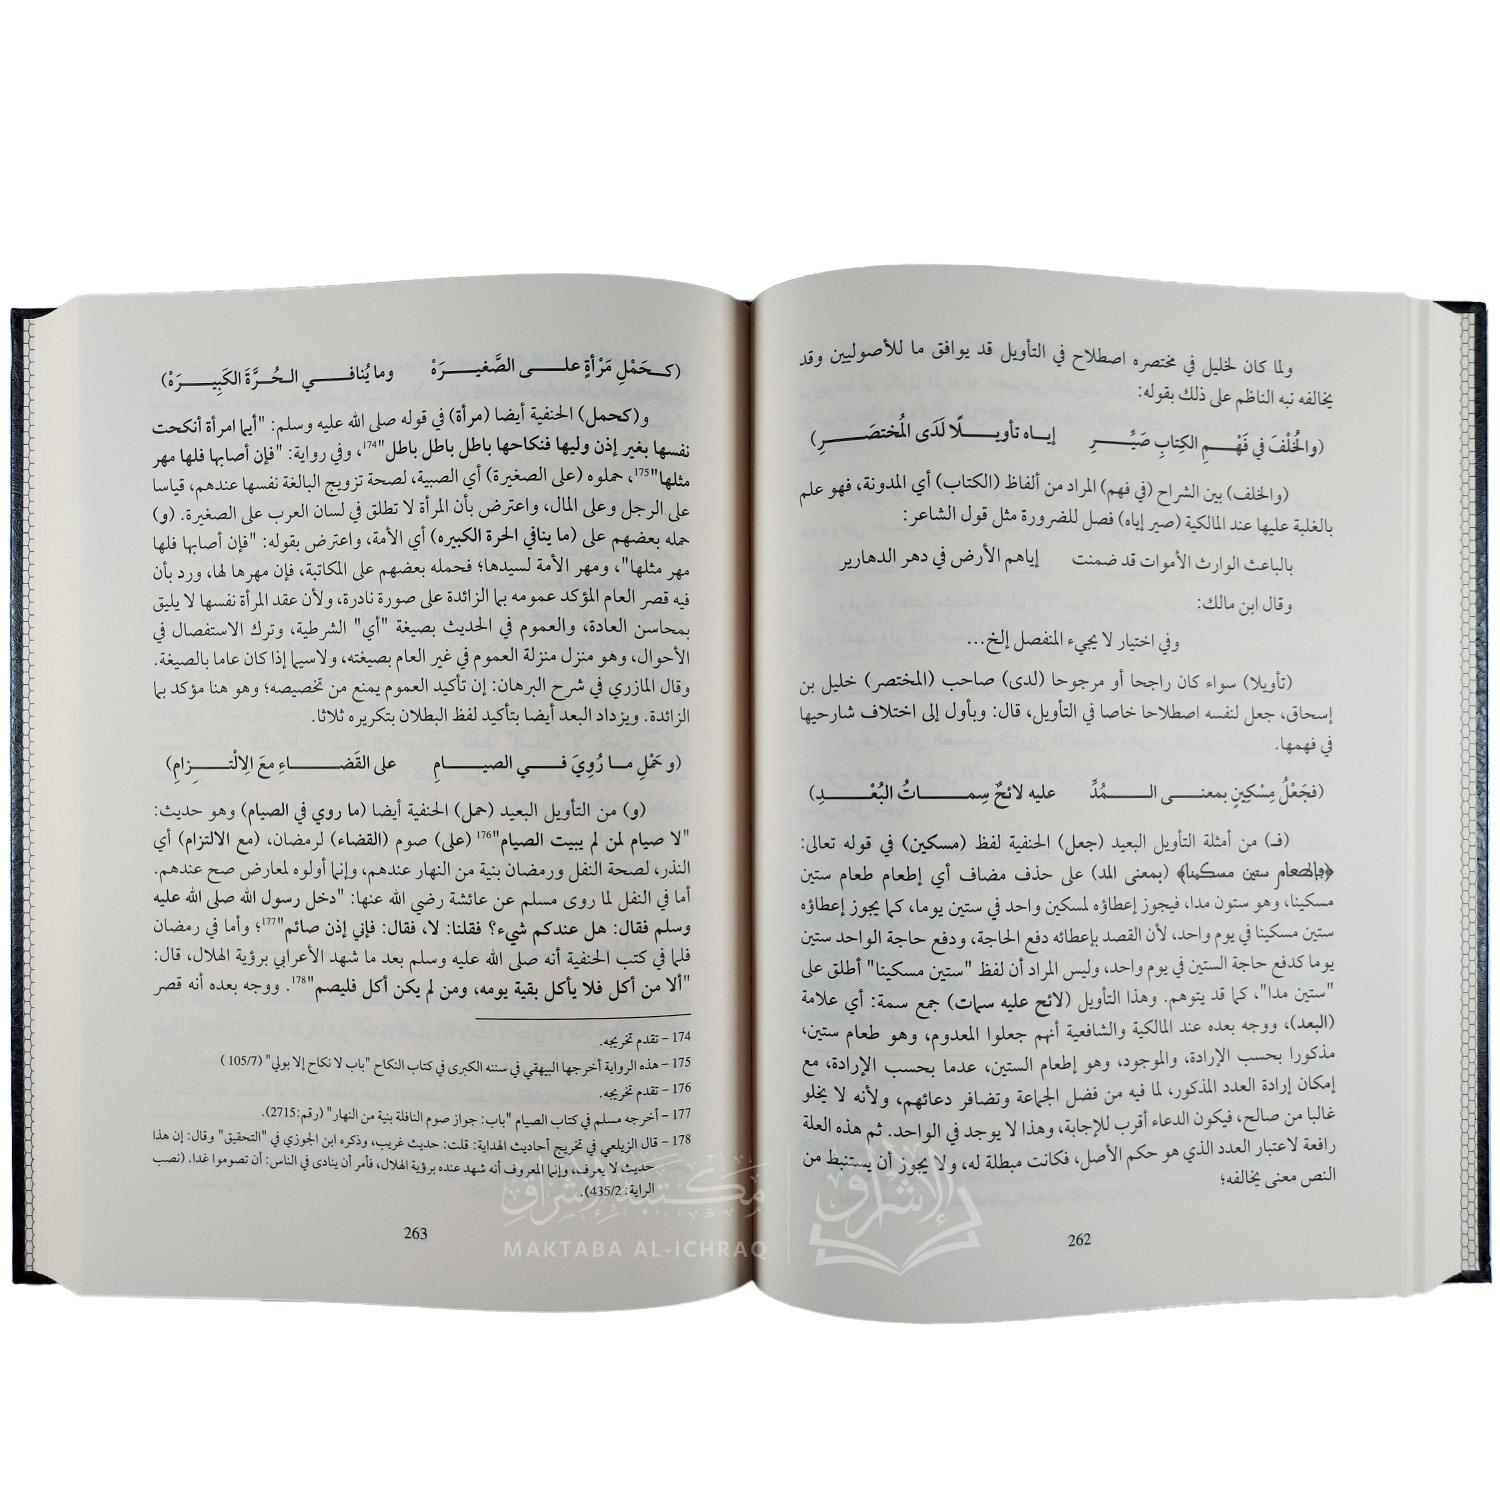 ولما كان لخليل في مختصره اصطلاح في التأويل قد يوافق ما للأصوليين وقد
يخالفه نبه الناظم على ذلك بقوله:
(والخُلْفَ في فَهْمِ الكِتابِ صَيِّرِ إياه تأويلًا لَدَى المُختصَرِ)
(والخلف) بين الشراح (في فهم) المراد من ألفاظ (الكتاب) أي المدونة، فهو علم
بالغلبة عليها عند المالكية (صير إياه) فصل للضرورة مثل قول الشاعر:
بالباعث الوارث الأموات قد ضمنت إياهم الأرض في دهر الدهارير
وقال ابن مالك:
وفي اختيار لا يجيء المنفصل إلخ...
(تأويلا) سواء كان راجحا أو مرجوحا (لدى) صاحب (المختصر) خليل بن
إسحاق، جعل لنفسه اصطلاحا خاصا في التأويل، قال: وبأول إلى اختلاف شارحيها
في فهمها.
(فجَعْلُ مِسْكِينٍ بمعنى المُدِّ عليه لائحٌ سِماتُ البُعْدِ)
(فـ) من أمثلة التأويل البعيد (جعل) الحنفية لفظ (مسكين) في قوله تعالى:
﴿فإطعام ستين مسكينا﴾ (بمعنى المد) على حذف مضاف أي إطعام طعام ستين
مسكينا، وهو ستون مدا، فيجوز إعطاؤه لمسكين واحد في ستين يوما، كما يجوز إعطاؤه
ستين مسكينا في يوم واحد، لأن القصد بإعطائه دفع الحاجة، ودفع حاجة الواحد ستين
يوما كدفع حاجة الستين في يوم واحد، وليس المراد أن لفظ "ستين مسكينا" أطلق على
"ستين مدا"، كما قد يتوهم. وهذا التأويل (لائح عليه سمات) جمع سمة: أي علامة
(البعد)، ووجه بعده عند المالكية والشافعية أنهم جعلوا المعدوم، وهو طعام ستين،
مذكورا بحسب الإرادة، والموجود، وهو إطعام الستين، عدما بحسب الإرادة، مع
إمكان إرادة العدد المذكور، لما فيه من فضل الجماعة وتضافر دعائهم، ولأنه لا يخلو
غالبا من صالح، فيكون الدعاء أقرب للإجابة، وهذا لا يوجد في الواحد. ثم هذه العلة
رافعة لاعتبار العدد الذي هو حكم الأصل، فكانت مبطلة له، ولا يجوز أن يستنبط من
النص معنى يخالفه؛
262
(كحَمْلِ مَرْأةٍ على الصَّغيرَهْ وما يُنافي الحُرَّةَ الكَبِيرَهْ)
و(كحمل) الحنفية أيضا (مرأة) في قوله صلى الله عليه وسلم: "أيما امرأة أنكحت
نفسها بغير إذن وليها فنكاحها باطل باطل باطل"174، وفي رواية: "فإن أصابها فلها مهر
مثلها"175، حملوه (على الصغيرة) أي الصبية، لصحة تزويج البالغة نفسها عندهم، قياسا
على الرجل وعلى المال، واعترض بأن المرأة لا تطلق في لسان العرب على الصغيرة. (و)
حمله بعضهم على (ما ينافي الحرة الكبيره) أي الأمة، واعترض بقوله: "فإن أصابها فلها
مهر مثلها"، ومهر الأمة لسيدها؛ فحمله بعضهم على المكاتبة، فإن مهرها لها، ورد بأن
فيه قصر العام المؤكد عمومه بما الزائدة على صورة نادرة، ولأن عقد المرأة نفسها لا يليق
بمحاسن العادة، والعموم في الحديث بصيغة "أي" الشرطية، وترك الاستفصال في
الأحوال، وهو منزل منزلة العموم في غير العام بصيغته، ولاسيما إذا كان عاما بالصيغة.
وقال المازري في شرح البرهان: إن تأكيد العموم يمنع من تخصيصه؛ وهو هنا مؤكد بما
الزائدة. ويزداد البعد أيضا بتأكيد لفظ البطلان بتكريره ثلاثا.
(و حَمْلِ ما رُوِيَ في الصيامِ على القَضاءِ معَ الِالْتِزامِ)
(و) من التأويل البعيد (حمل) الحنفية أيضا (ما روي في الصيام) وهو حديث:
"لا صيام لمن لم يبيت الصيام"176 (على) صوم (القضاء) لرمضان، (مع الالتزام) أي
النذر، لصحة النفل ورمضان بنية من النهار عندهم، وإنما أولوه لمعارض صح عندهم.
أما في النفل لما روى مسلم عن عائشة رضي الله عنها: "دخل رسول الله صلى الله عليه
وسلم فقال: هل عندكم شيء؟ فقلنا: لا، فقال: فإني إذن صائم"177؛ وأما في رمضان
فلما في كتب الحنفية أنه صلى الله عليه وسلم بعد ما شهد الأعرابي برؤية الهلال، قال:
"ألا من أكل فلا يأكل بقية يومه، ومن لم يكن أكل فليصم"178. ووجه بعده أنه قصر
174 – تقدم تخريجه.
175 – هذه الرواية أخرجها البيهقي في سننه الكبرى في كتاب النكاح "باب لا نكاح إلا بولي" (105/7)
176 – تقدم تخريجه.
177 – أخرجه مسلم في كتاب الصيام "باب: جواز صوم النافلة بنية من النهار" (رقم:2715).
178 – قال الزيلعي في تخريج أحاديث الهداية: قلت: حديث غريب، وذكره ابن الجوزي في "التحقيق" وقال: إن هذا
حديث لا يعرف، وإنما المعروف أنه شهد عنده برؤية الهلال، فأمر أن ينادى في الناس: أن تصوموا غدا. (نصب
الراية: 435/2).
263
مكتبة الإشراق
MAKTABA AL-ICHRAQ
الإشراق